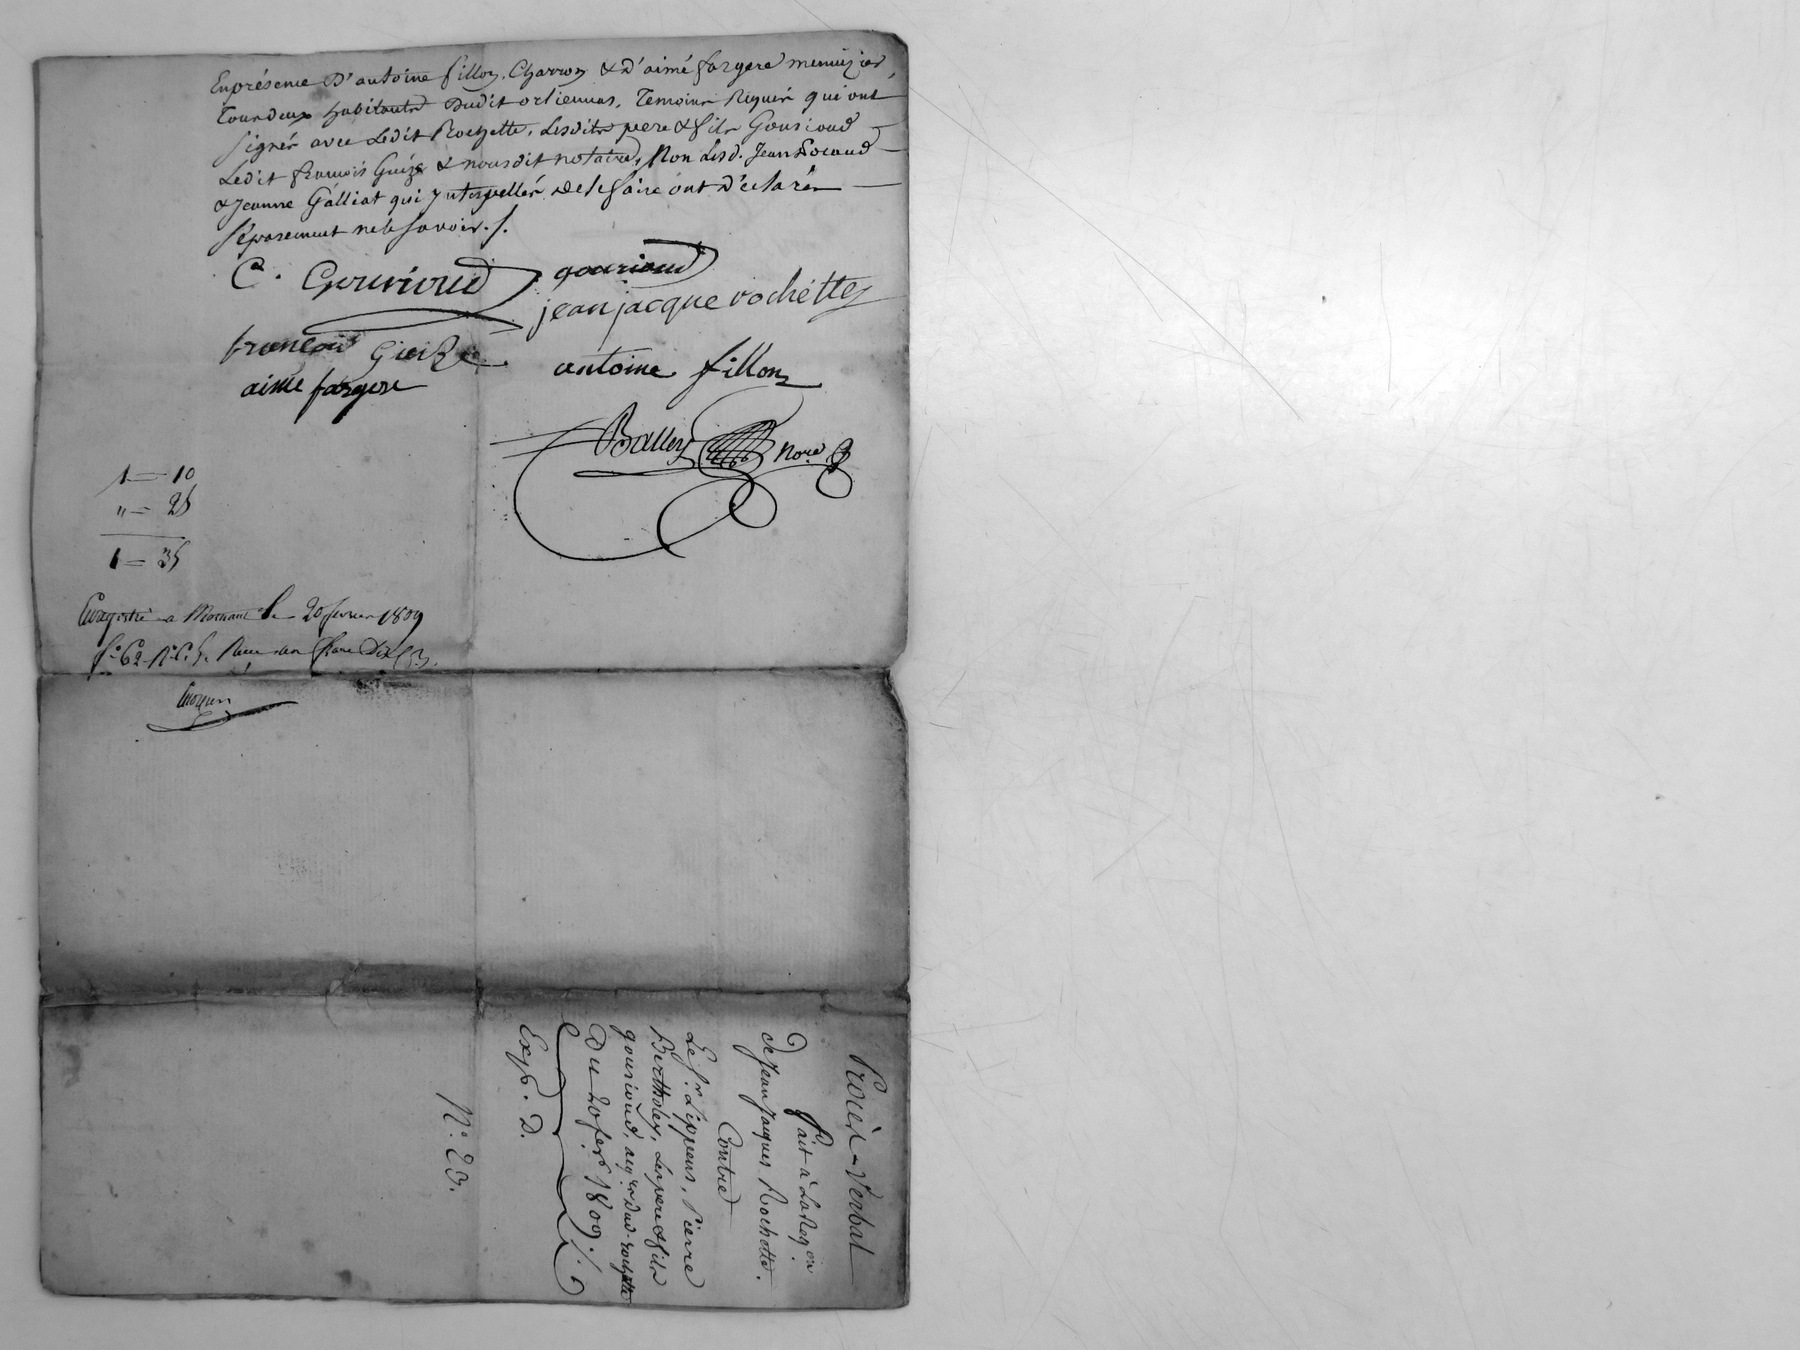 En présence D'antoine fillon, Charron & D'aimé fargere menuizier,
Tous deux habitants Dudit orlienas, Temoins Requis qui ont
signés avec Ledit Rochette, Lesdits pere & fils Gourioud
Ledit francois Guize & nousdit notaire, Non Lesd. Jean
& Jeanne Galliat qui ynterpellés de le faire ont Déclarés
séparement ne le savoir./.
C. Gourioud gourioud
jean jacque rochétte
francois Guize
aime fargere antoine fillon
Balley Nore
1 = 10
" = 25
1 = 35
Enregistré a Mornant le 20 fevrier 1809
fo 62 Ro C. 5. Recu un franc Dix C.
Procès-Verbal
fait à La Reqon
de Jean Jacques Rochette.
Contre
Le Sr. Lippens, Pierre
Bertholey, Les pere & fils
gourioud, acqrs Dud. rochette
Du 20 fer 1809./.
Exp. D.
No. 23.